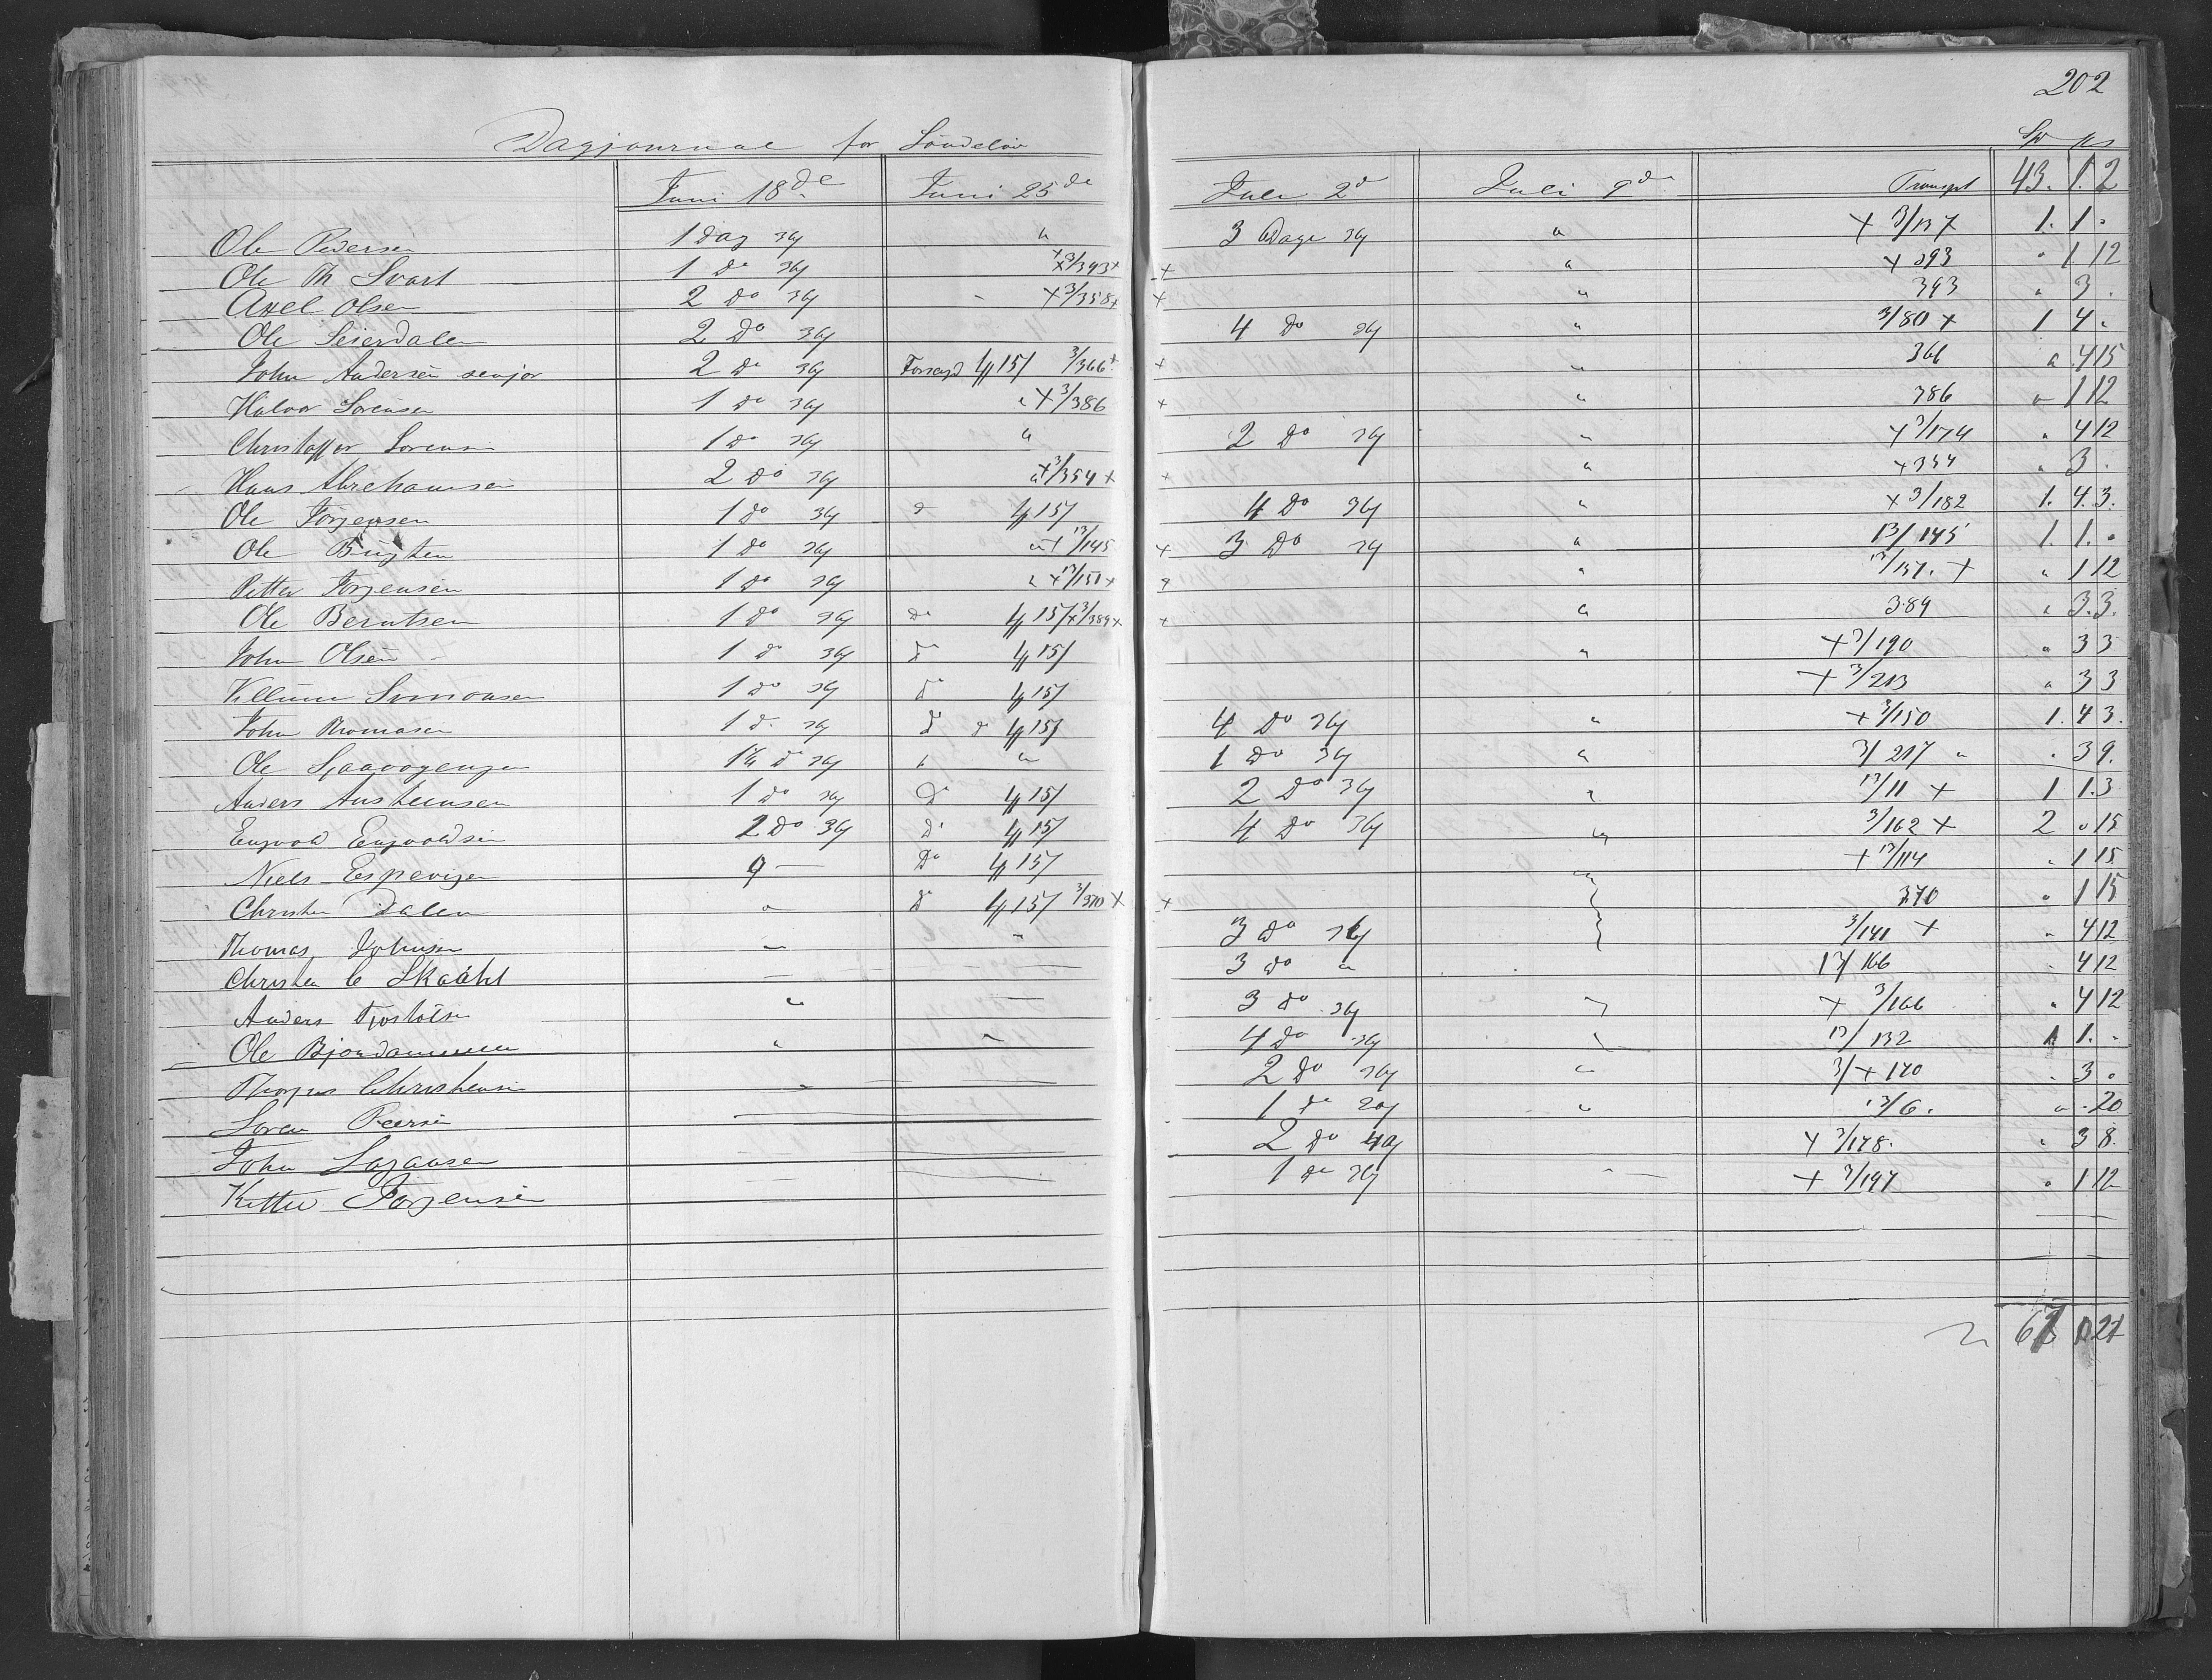 202
Dagjournal for Söndeløv Sp
Juni 18de Juni 25de Juli 2d Juli 9d Transpt 43. 1. 2
Ole Pedersen 1 Dag 36 " 3 Dage 36 " + 3/137 1. 1.
Ole Th Svart 1 Do 36 + 3/393 + + " + 393 " 1 12
Axel Olsen 2 Do 36 - + 3/358 + + " 393 " 3.
Ole Seierdalen 2 Do 36 4 Do 36 " 3/80 + 1 4.
John Andersen senjor 2 Do 36 4/15/ 3/366 + + " 366 " 4 15
Halvor Sörensen 1 Do 36 " + 3/386 + " 386 " 1 12
Christoffer Sorensen 1 Do 36 " 2 Do 36 " + 3/174 " 4 12
Hans Abrehamsen 2 Do 36 + 3/354 + + " + 354 " 3.
Ole Jörgensen 1 Do 36 Do 4/15/ 4 Do 36 " + 3/182 1. 4. 3.
Ole 1 Do 36 + 13/145 + 3 Do 36 " 13/145 1. 1.
Petter Jörgensen 1 Do 36 + 13/151 + + " 13/151. + " 1 12
Ole Berntsen 1 Do 36 Do 4/15/ + 3/389 + + " 389 " 3. 3.
John Olsen 1 Do 36 Do 4/15/ " + 3/190 " 3 3
Simonsen 1 Do 36 Do 4/15/ + 3/213 " 3 3
John Thomasen 1 Do 36 Do 4/15/ 4 Do 36 " + 3/150 1. 4 3.
Ole Do 36 " 1 Do 36 " 3/217 " . 3 9.
Anders Austeensen 1 Do 36 Do 4/15/ 2 Do 36 " 13/11 + 1 1. 3
Engvold Engvoldsen 2 Do 36 Do 4/15/ 4 Do 36 " 3/162 + 2 " 15
Niels Espevigen Do 4/15/ " + 13/114 " 1 15
Christen Dalen " Do 4/15/ 3/370 + + 370 " 1 15
Thomas Johnsen " " 3 Do 36 3/141 + " 4 12
Christen C Skaahl 3 Do " 13/166 " 4 12
Anders Tjostølsen " 3 Do 36 " + 3/166 " 4 12
Ole Bjordammen " " 4 Do 36 13/132 1 1.
Christensen " 2 Do 36 " 3/+ 170 " 3
Soren Peersen 1 Do " 13/6. " . 20
John 2 Do + 3/178. " 3 8.
Kittel Jörgensen 1 Do 36 + 3/197 " 1 12